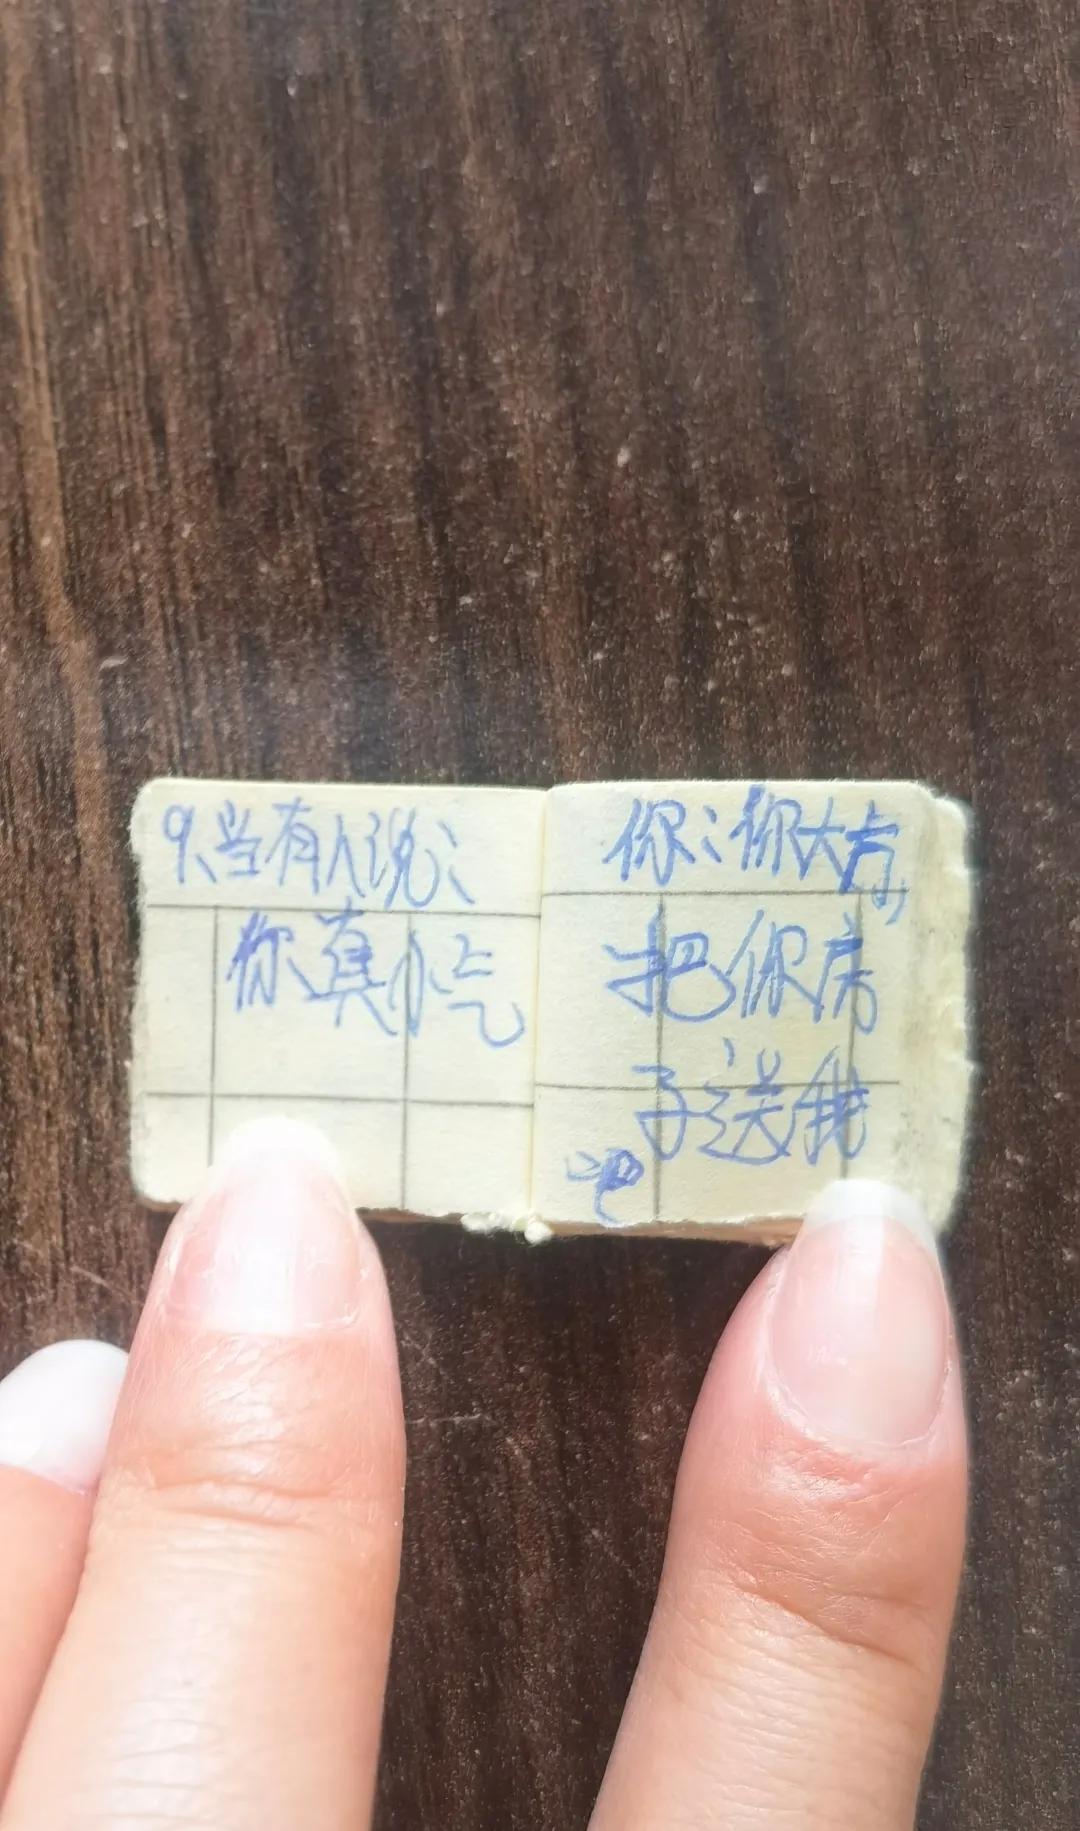 9、当有人说:
你真小气
你:你大方,
把你房
子送我
吧